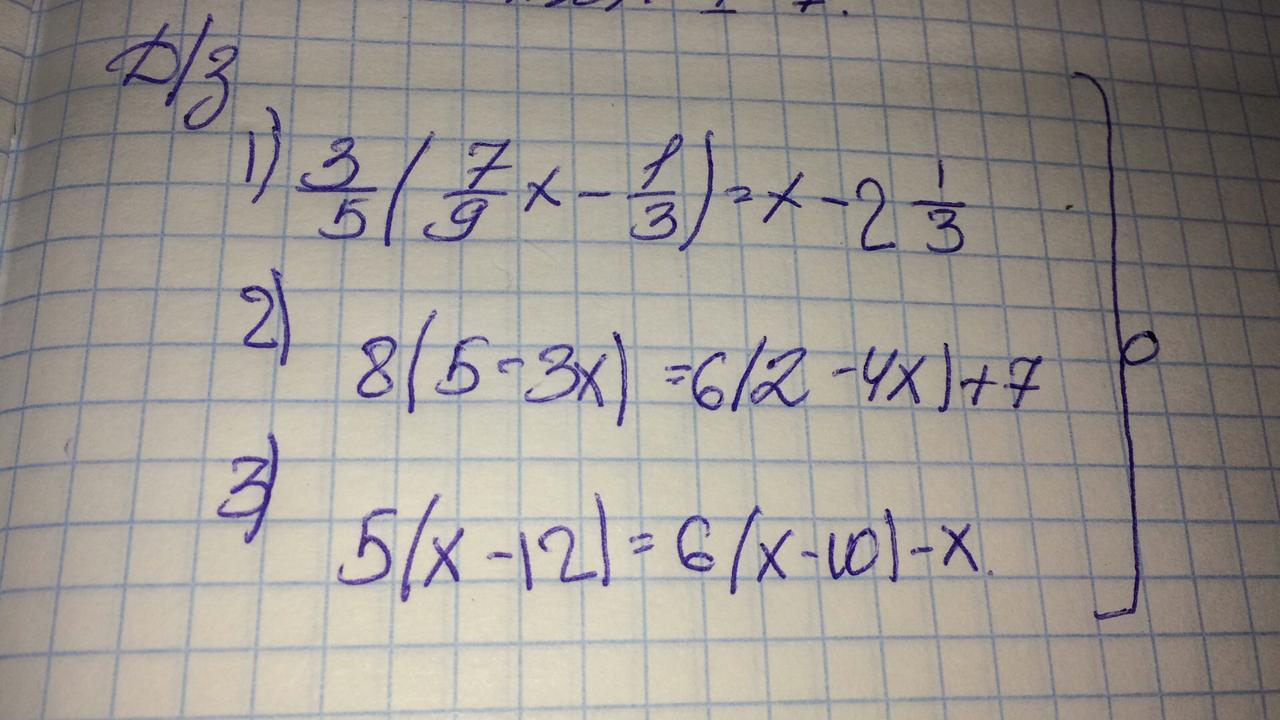 Д/з
1) 3/5 ( 7/9 x - 1/3 ) = x - 2 1/3
2) 8(5-3x) = 6(2-4x)+7
3) 5(x-12) = 6(x-10)-x.